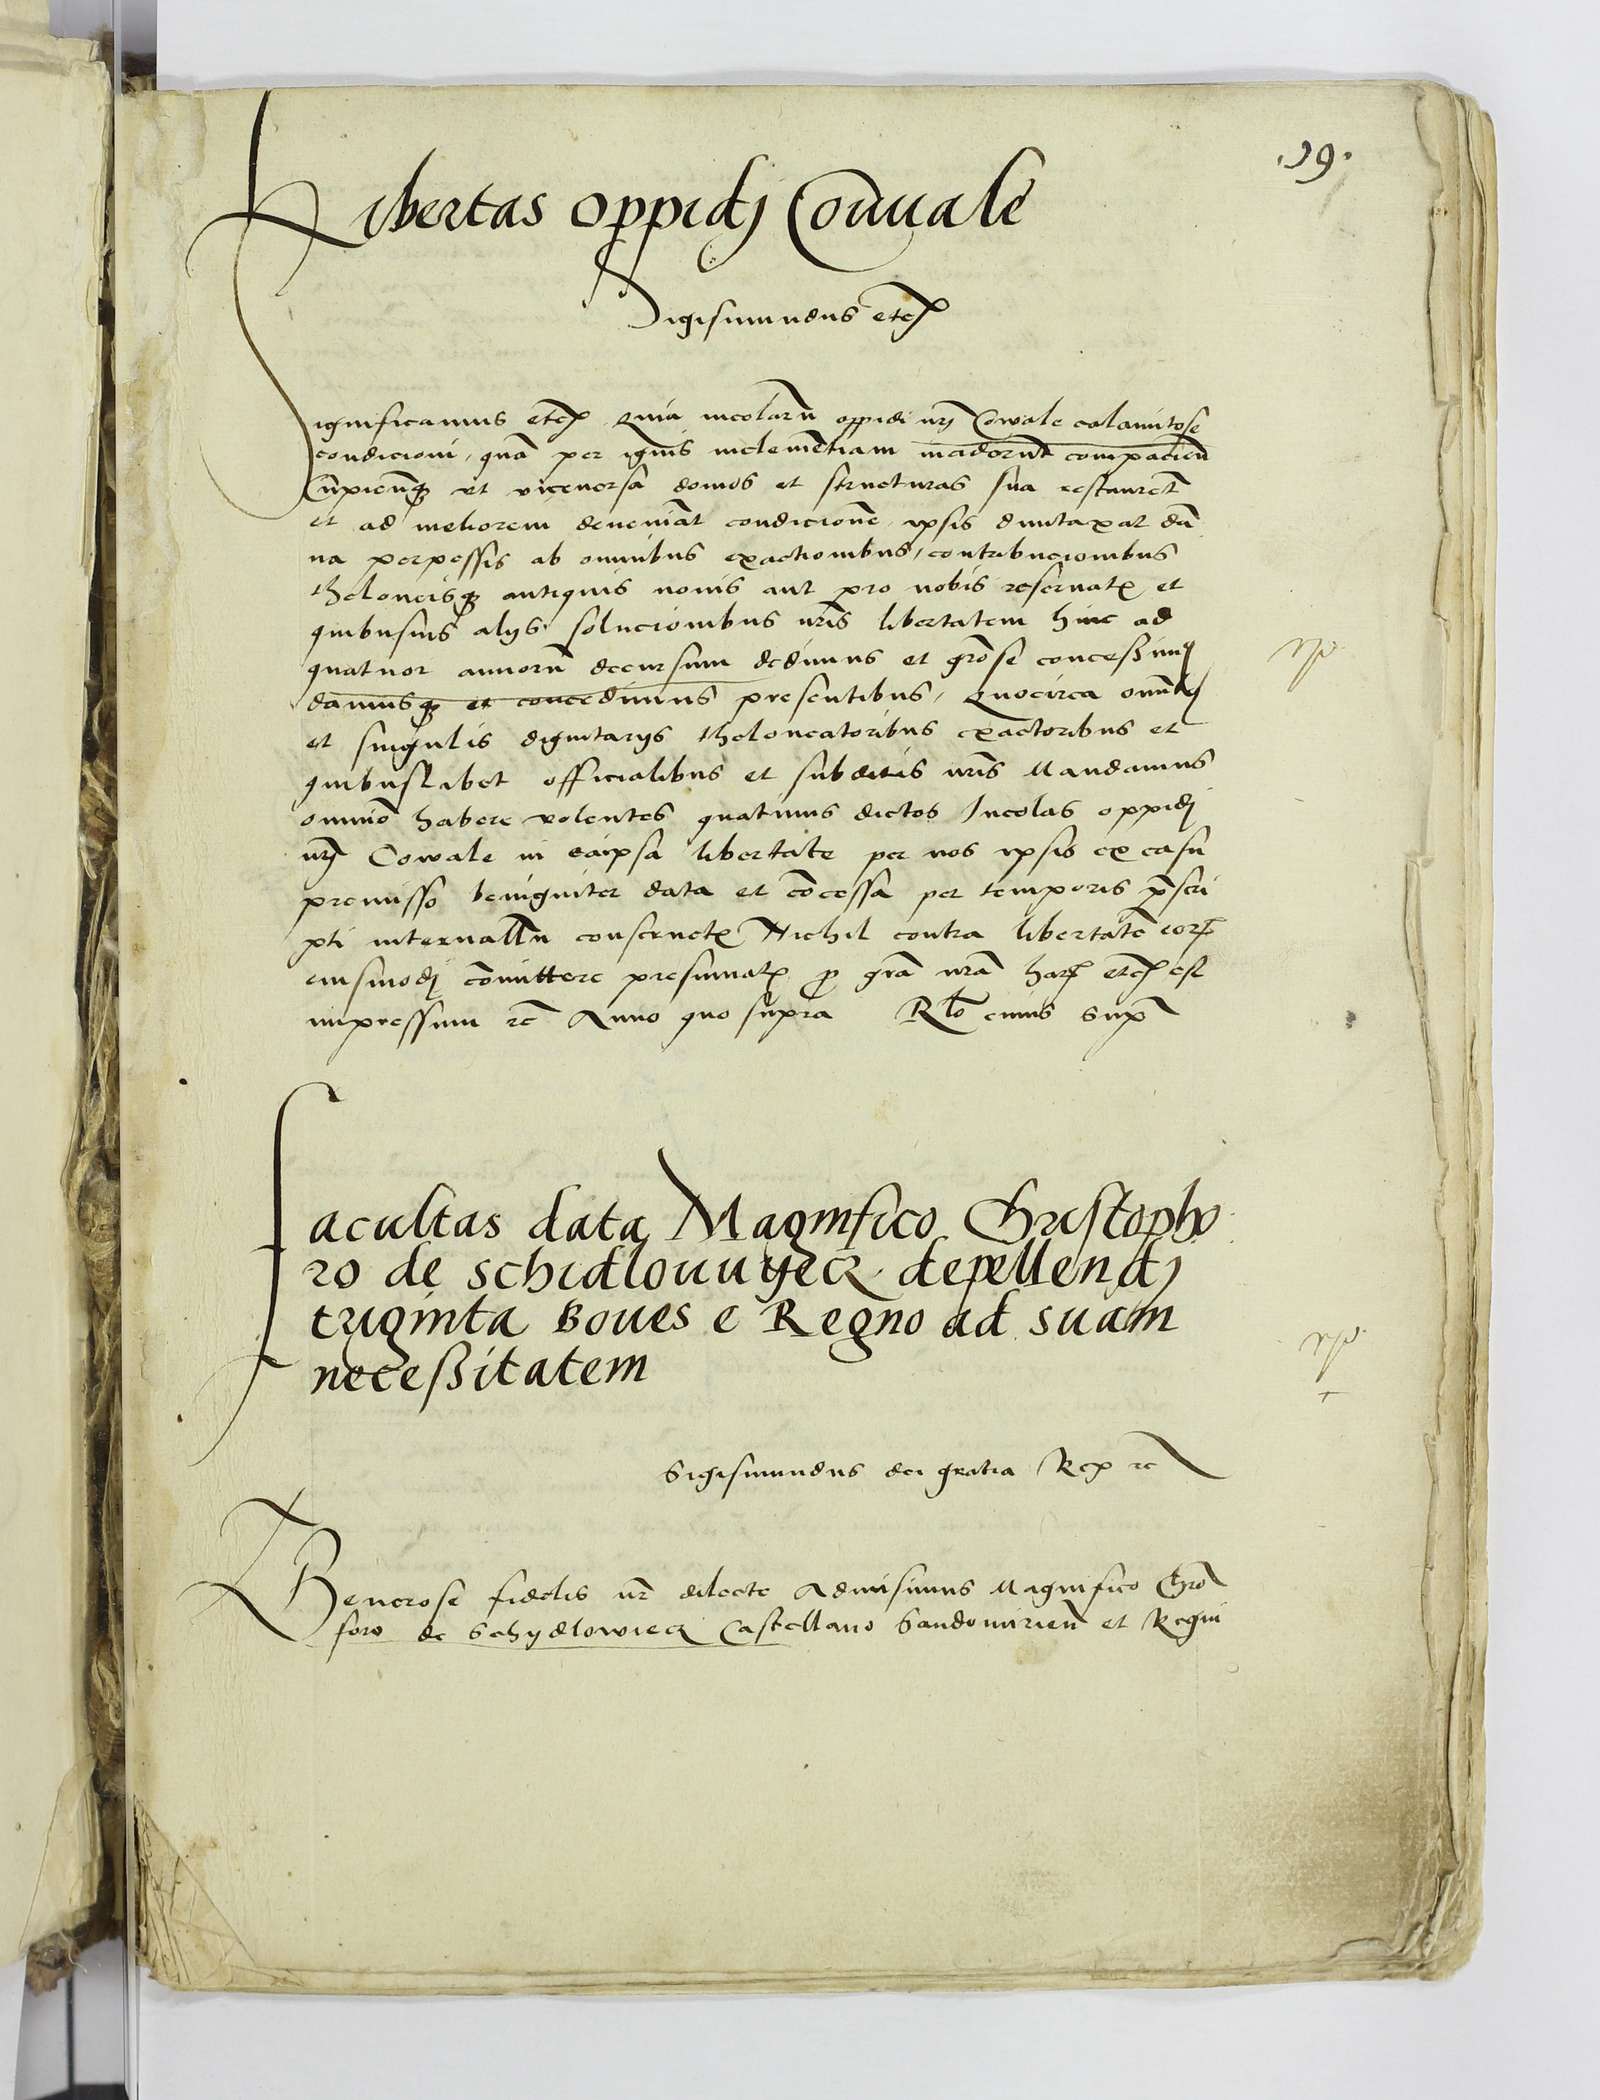 .19.
Libertas oppidj Covuale
Sigismundus etc
Significamus etc Quia incolarū oppidi nrj Cowale calamitose
condicioni, quā per ignis inclementiam inciderūt compacien
Cupienq vt viceversa domos et structuras sua restaurēt
et ad meliorem deveniāt condicionē ipsis dumtaxat dā
na perpessis ab omnibus exactionibus, contribucionibus
theloneisq antiquis novis aut pro nobis reservatis et
quibusvis alijs solucionibus nris libertatem hinc ad
quatuor annorū decursum dedimus et grose concessimus
damusq et concedimus presentibus, Quocirca omnibus
et singulis dignitarijs theloneatoribus exactoribus et
quibuslibet officialibus et subditis nris Mandamus
omnino habere volentes quatinus dictos Incolas oppidj
nrj Cowale in eaipsa libertate per nos ipsis ex casu
premisso benigniter data et cōcessa per temporis prescri
pti intervallū conservetis Nichil contra libertatē eor
eiusmodj cōmittere presumatis p grā nrā har etc est
impressum rc Anno quo supra Rlo cuius sup
Facultas data Magnifico Christopho
ro de schidlovuyecz depellendj
triginta Boves e Regno ad suam
necessitatem
Sigismundus dei gratia Rex rc
Generose fidelis nr dilecte Admisimus Magnifico Chro
foro de Schydlowiecz Castellano Sandomirien et Regni